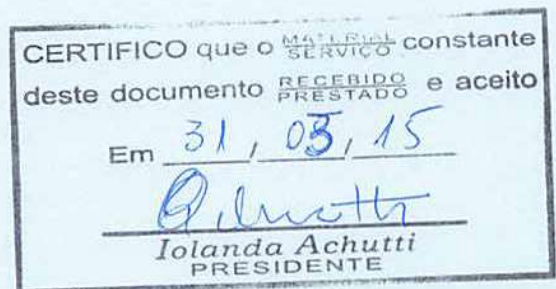 CERTIFICO que o MATERIAL SERVIÇO constante
deste documento RECEBIDO PRESTADO e aceito
Em 31, 03, 15
Iolanda Achutti
PRESIDENTE